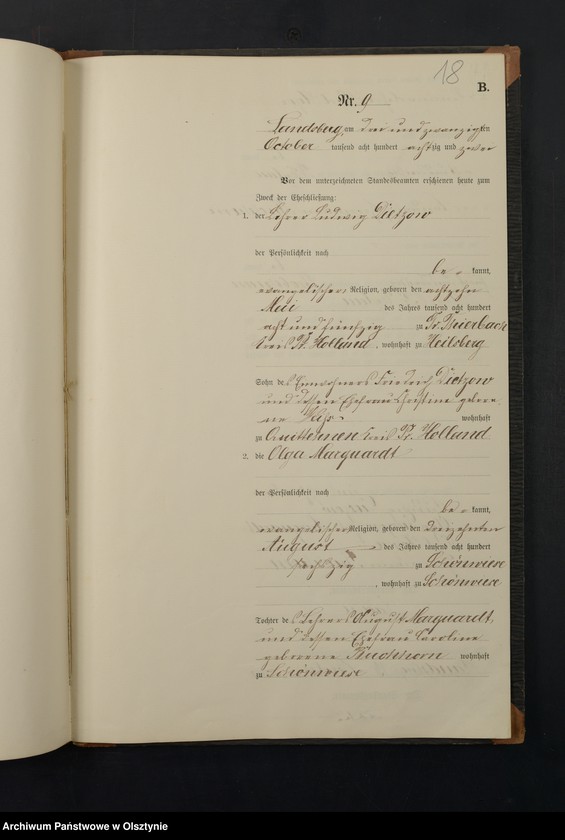 18
B.
Nr. 9
Landsberg am drei und zwanzigsten
October tausend acht hundert achtzig und zwei
Vor dem unterzeichneten Standesbeamten erschienen heute zum
Zweck der Eheschließung:
1. der Lehrer Ludwig Dietzow
der Persönlichkeit nach
be kannt,
evangelischer Religion, geboren den achtzehn
Mai des Jahres tausend acht hundert
acht und fünfzig zu Pr.
Kreis Pr. Holland, wohnhaft zu Heilsberg
Sohn des Einwohners Friedrich Dietzow
und dessen Ehefrau Christine gebore-
ne wohnhaft
zu Quittainen Kreis Pr. Holland
2. die Olga Marquardt
der Persönlichkeit nach
be kannt,
evangelischer Religion, geboren den dreizehnten
August des Jahres tausend acht hundert
sechzig zu Schönwiese
, wohnhaft zu Schönwiese
Tochter des Lehrers August Marquardt,
und dessen Ehefrau Caroline
geborene wohnhaft
zu Schönwiese
Archiwum Państwowe w Olsztynie